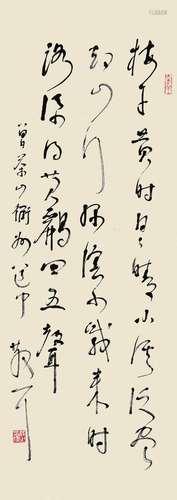 梅子黄时日々晴小溪泛尽
却山行绿阴不减来时
路添得黄鹂四五聲
曾茶山衢州道中
散耳